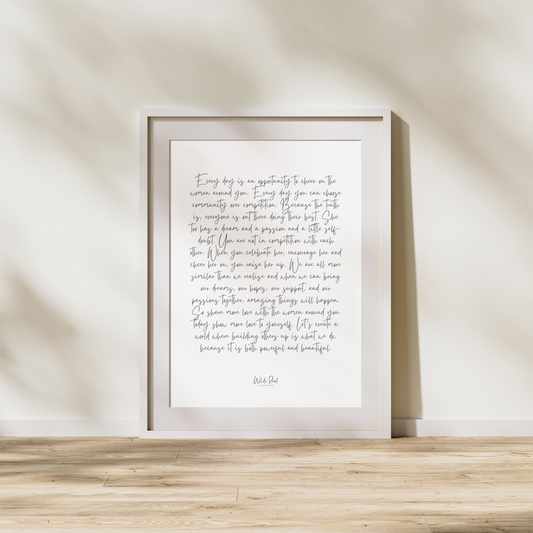 Every day is an opportunity to cheer on the
women around you. Every day you can choose
community over competition. Because the truth
is, everyone is out there doing their best. She
too has a dream and a passion and a little self-
doubt. You are not in competition with each
other. When you celebrate her, encourage her and
cheer her on, you raise her up. We are all more
similar than we realise and when we can bring
our dreams, our hopes, our support, and our
passions together, amazing things will happen.
So share more love with the women around you
today show more love to yourself. Let's create a
world where building others up is what we do,
because it is both powerful and beautiful.